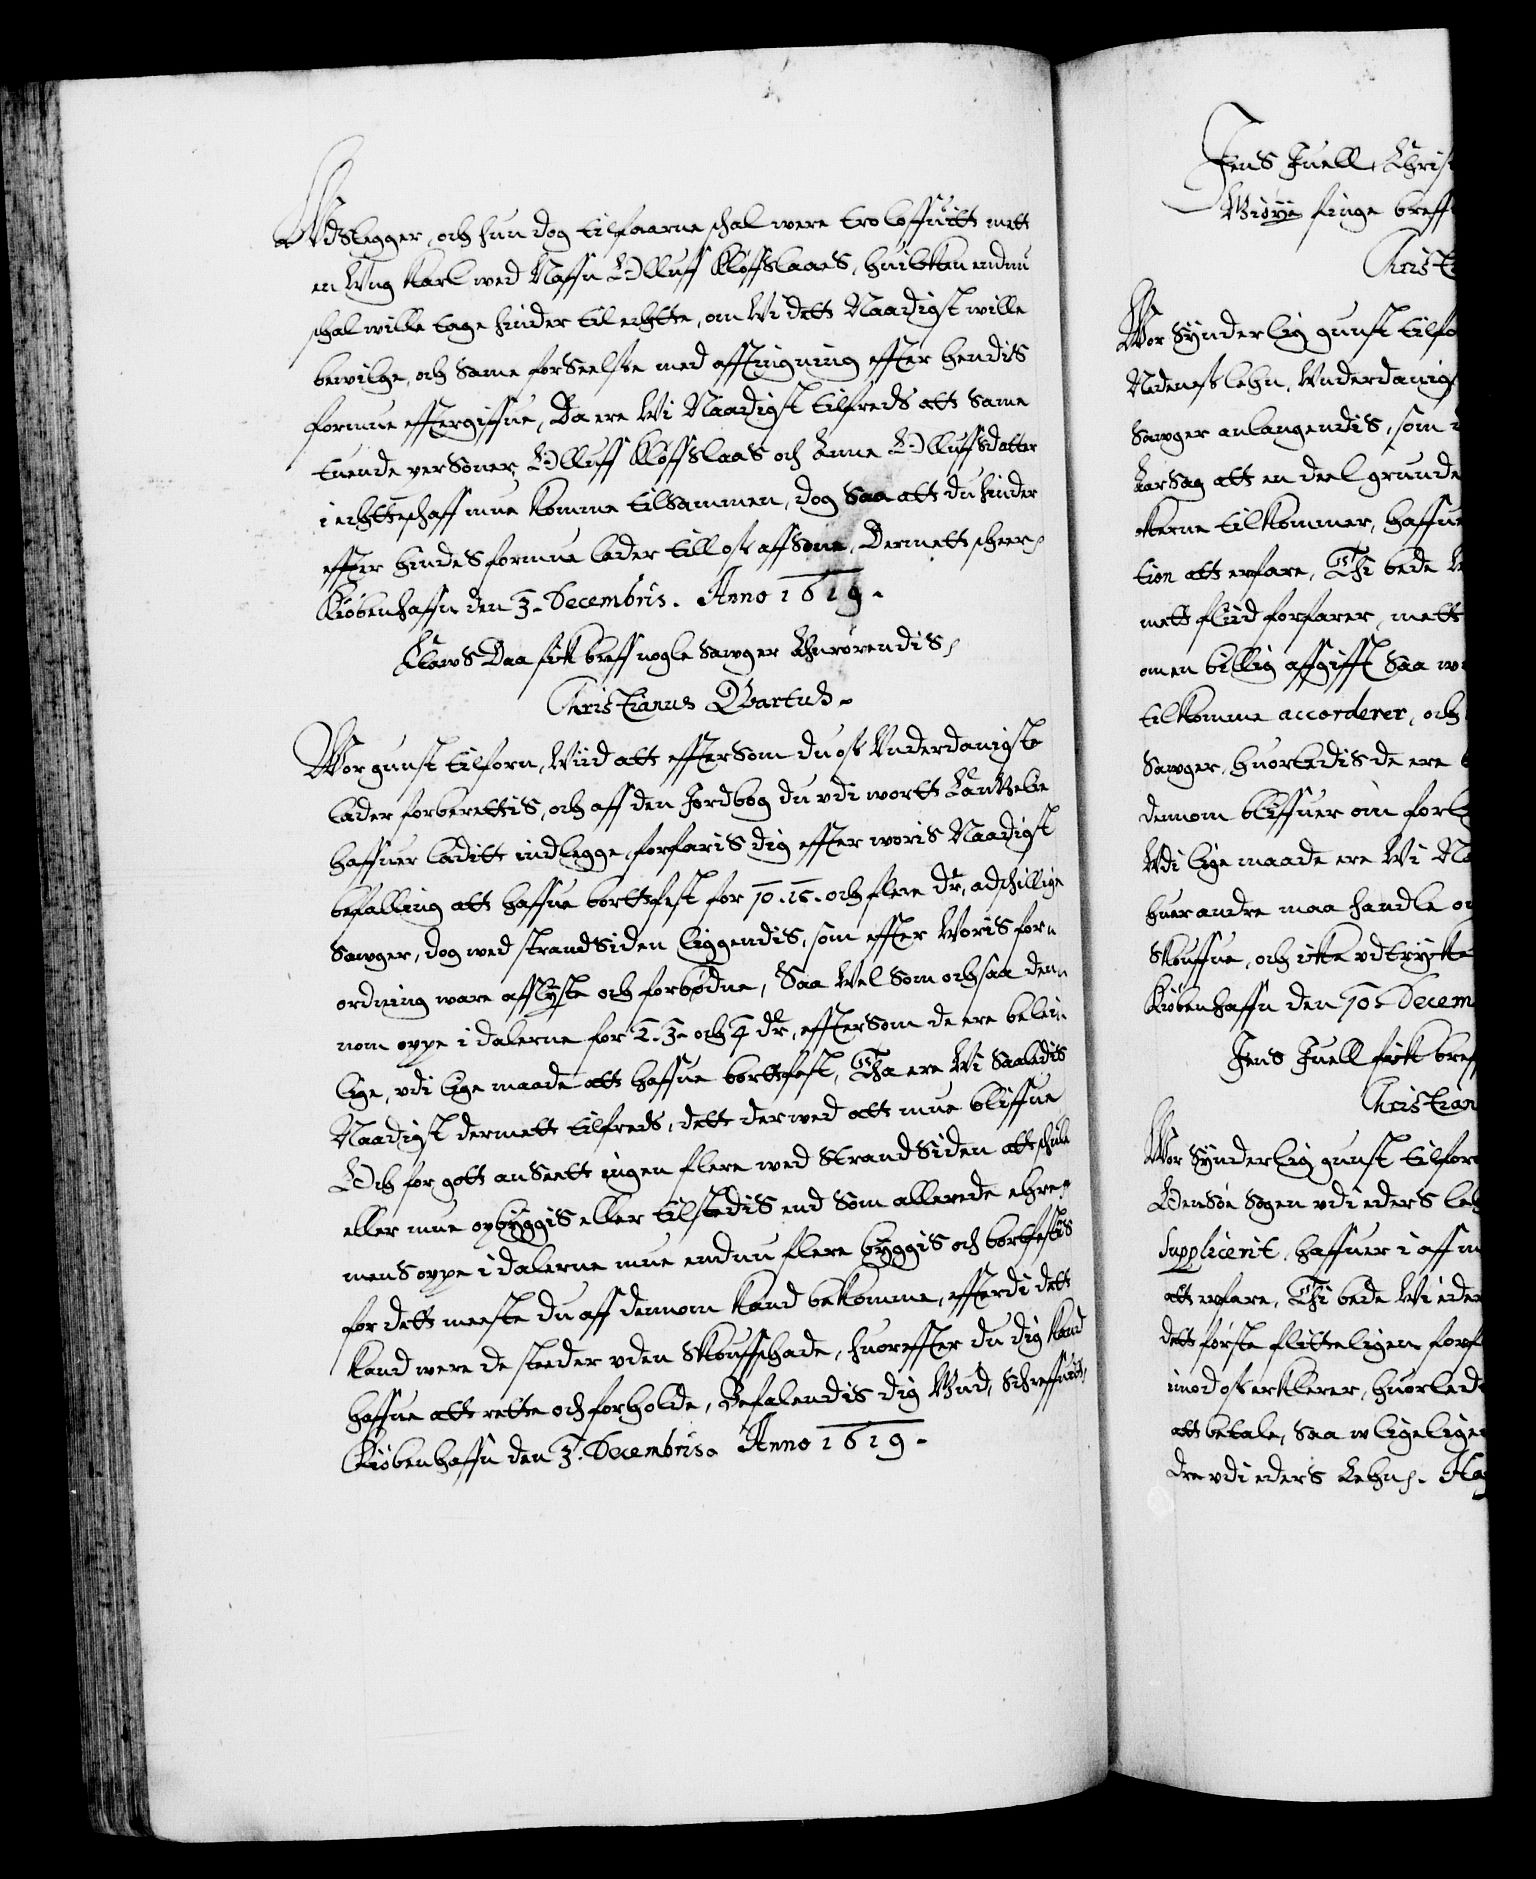 Wdslegger, och hun dog tilfaarne schal were troloffuitt mett
en Wng Karl wed Naffn Olluff Kløffslaaes, huilcken endnu
schal wille tage hinder til echtte, om Wi dett Naadigst wille
bewilge, och same forseelse med afftingning effter hendis
formue efftergiffue, Da ere Wi Naadigst tilfreds att same
tuende personer Olluff Kløffslaas och Anne Olluffsdatter
i echtteschaff mue komme tilsammen, dog saa att du hinder
effter hindes formue lader till os affsone, Dermett scheer
Kiøbenhaffn den 3. Decembris. Anno 1619.
Claws Daa fick breff nogle Sawger Anrørendis
Christianus Quartus.
Wor gunst tilforn, Wiid att efftersom du os Vnderdanigste
lader forberettis, och aff den Jordbog du vdi wortt Cantzelie
haffuer laditt indlegge, forfaris dig effter woris Naadigst
befalling att haffue bortfest for 10. 15. och flere dr, adschillige
Sawger, dog wed strandsiden liggendis, som effter Woris for-
ordning ware afflyste och forbødne, Saa Wel som ochsaa den-
nom oppe i dalerne for 2. 3. och 4 dr, efftersom de ere belei-
lige, vdi lige maade att haffue bortfest, Tha ere Wi Saaledis
Naadigst dermett tilfreds, dett derwed att mue bliffue
Och for gott anseett ingen flere wed Strandsiden att schule
eller mue opbyggis eller tilstedis end som allerede ehre,
mens oppe i dalerne mue endnu flere byggis och bortfestis
for dett meeste du aff dennom kand bekomme, effterdi dett
kand were de steeder vden Skouffschade, huoreffter du dig kand
haffue att rette och forholde, Befalendis dig Gud, Schreffuit
Kiøbenhaffn den 3. Decembris. Anno 1619.
Jens Juell, Christ
finge breff
Christ
Wor Synderlig gunst tilfo
Nedenes lehn, Vnderdanig
Sawger anlangendis, som
Aarsag att en deel grunde
kerne tilkommer, haffue
tion att erfare, Thi bede W
mett fliid forfarer, mett
om en billig affgifft Saa
tilkomme accorderer, och
Sawger, huorledis de ere
dennom bliffuer om forl
Vdi lige maade ere Wi Na
huerandre maa handle o
Skouffue, och icke vdtrycke
Kiøbenhaffn den 10. Decem
Jens Juell fick breff
Christian
Wor Synderlig gunst tilfor
Sogen vdi eders leh
Supplicerit, haffuer i aff
att erfare, Thi bede Wi eder
dett første flitteligen forf
imod os erklerer, huorled
att betale, Saa w ligelige
dre vdi eders Lehn.